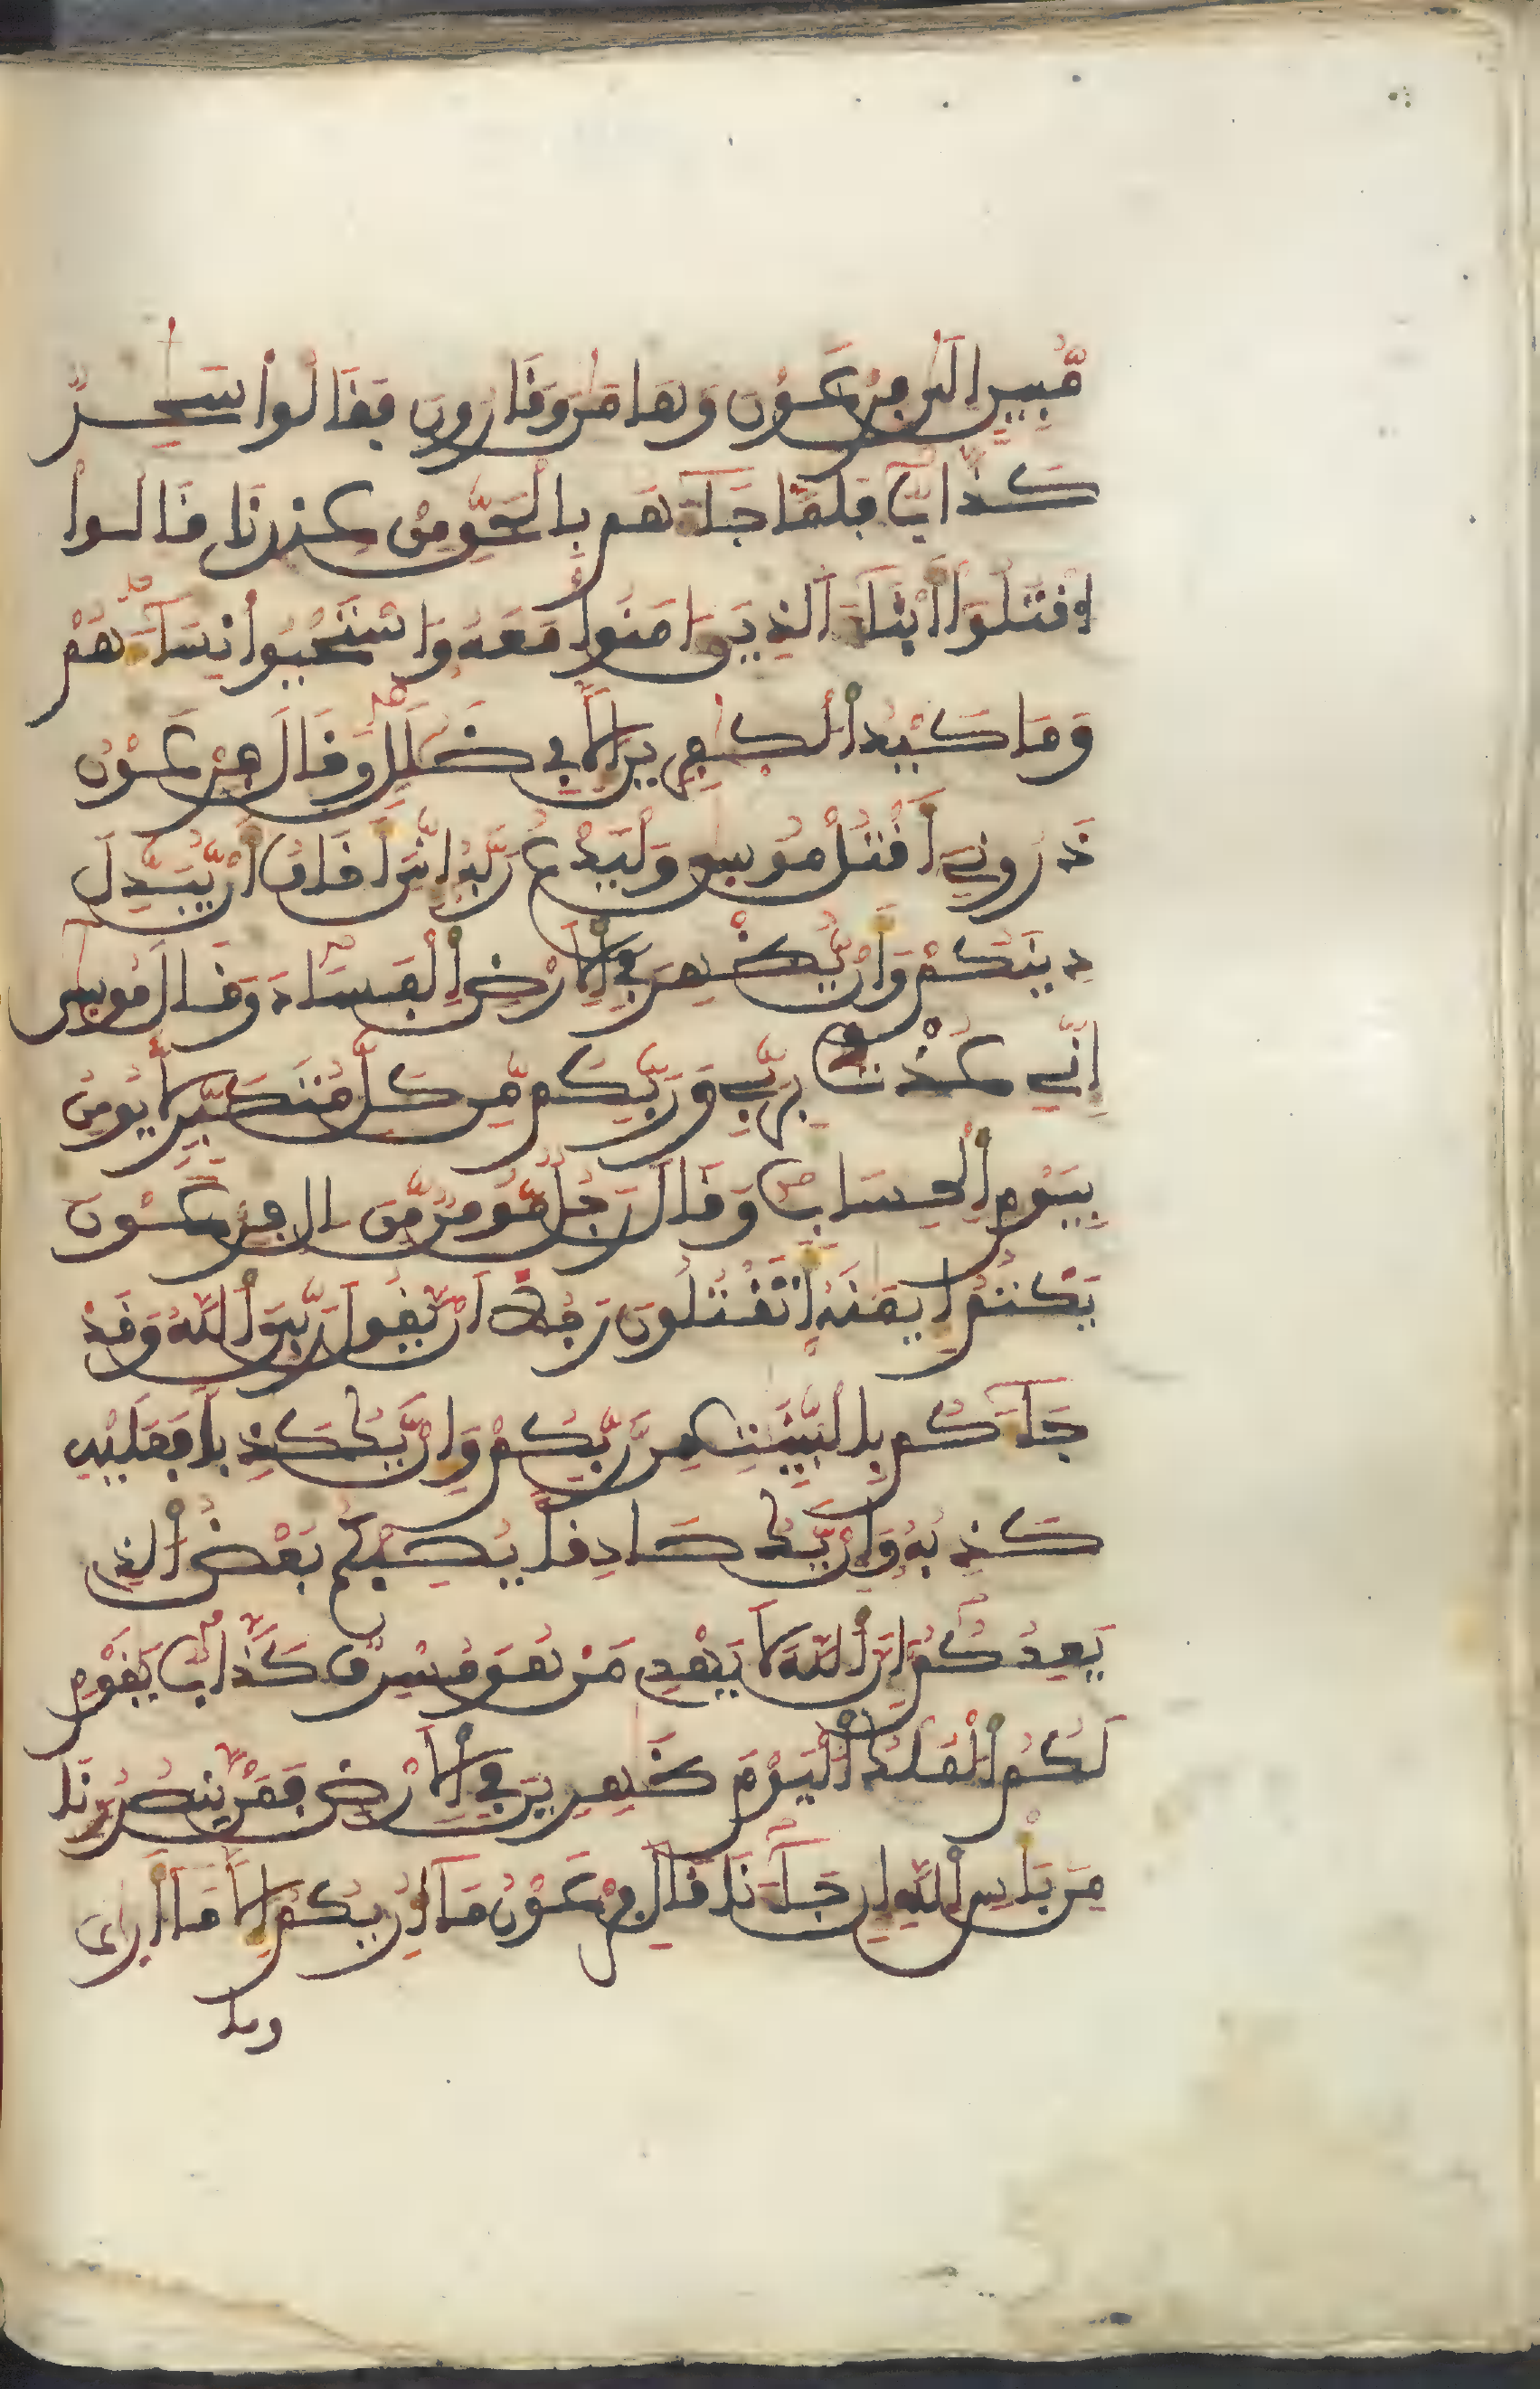 مُّبِيرٍ اِلَىٰ فِرْعَوْنَ وَهَامَٰنَ وَقَارُونَ فَقَالُواْ سَٰحِرٌ
كَذَّابٌ فَلَمَّا جَآءَهُم بِالْحَقِّ مِنْ عِندِنَا قَالُواْ
اُقْتُلُوٓاْ أَبْنَآءَ اَلذِينَ ءَامَنُواْ مَعَهُۥ وَاسْتَحْيُواْ نِسَآءَهُمْ
وَمَا كَيْدُ اُلْكٰفِرِينَ إِلَّا فِي ضَلَٰلٍ وَقَالَ فِرْعَوْنُ
ذَرُونِيٓ أَقْتُلْ مُوسىٰ وَلْيَدْعُ رَبَّهُۥٓ إِنِّيَ أَخَافُ أَنْ يُّبَدِّلَ
دِينَكُمْ وَأَنْ يُّظْهِرَ فِي اِلَارْضِ اِلْفَسَادَ وَقَالَ مُوسىٰٓ
إِنِّي عُذْتُ بِرَبِّي وَرَبِّكُم مِّن كُلِّ مُتَكَبِّرٍ لَّا يُومِنُ
بِيَوْمِ اِلْحِسَابِ وَقَالَ رَجُلٌ مُّومِنٌ مِّنَ اٰلِ فِرْعَوْنَ
يَكْتُمُ إِيمَٰنَهُۥٓ أَتَقْتُلُونَ رَجُلًا اَنْ يَّقُولَ رَبِّيَ اَللَّهُ وَقَدْ
جَآءَكُم بِالْبَيِّنَٰتِ مِن رَّبِّكُمْ وَإِنْ يَّكُ كَٰذِباً فَعَلَيْهِ
كَذِبُهُۥ وَإِنْ يَّكُ صَادِقاً يُصِبْكُم بَعْضُ اُلذِي
يَعِدُكُمُۥٓ إِنَّ اَللَّهَ لَا يَهْدِي مَنْ هُوَ مُسْرِفٌ كَذَّابٌ يَٰقَوْمِ
لَكُمُ اُلْمُلْكُ اُلْيَوْمَ ظَٰهِرِينَ فِي اِلَارْضِ فَمَنْ يَّنصُرُنَا
مِنۢ بَأْسِ اِللَّهِ إِن جَآءَنَا قَالَ فِرْعَوْنُ مَآ أُرِيكُمُۥٓ إِلَّا مَآ أَرىٰ
وما